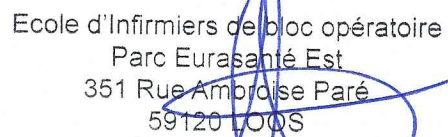 Ecole d'Infirmiers de bloc opératoire
Parc Eurasanté Est
351 Rue Ambroise Paré
59120 LOOS